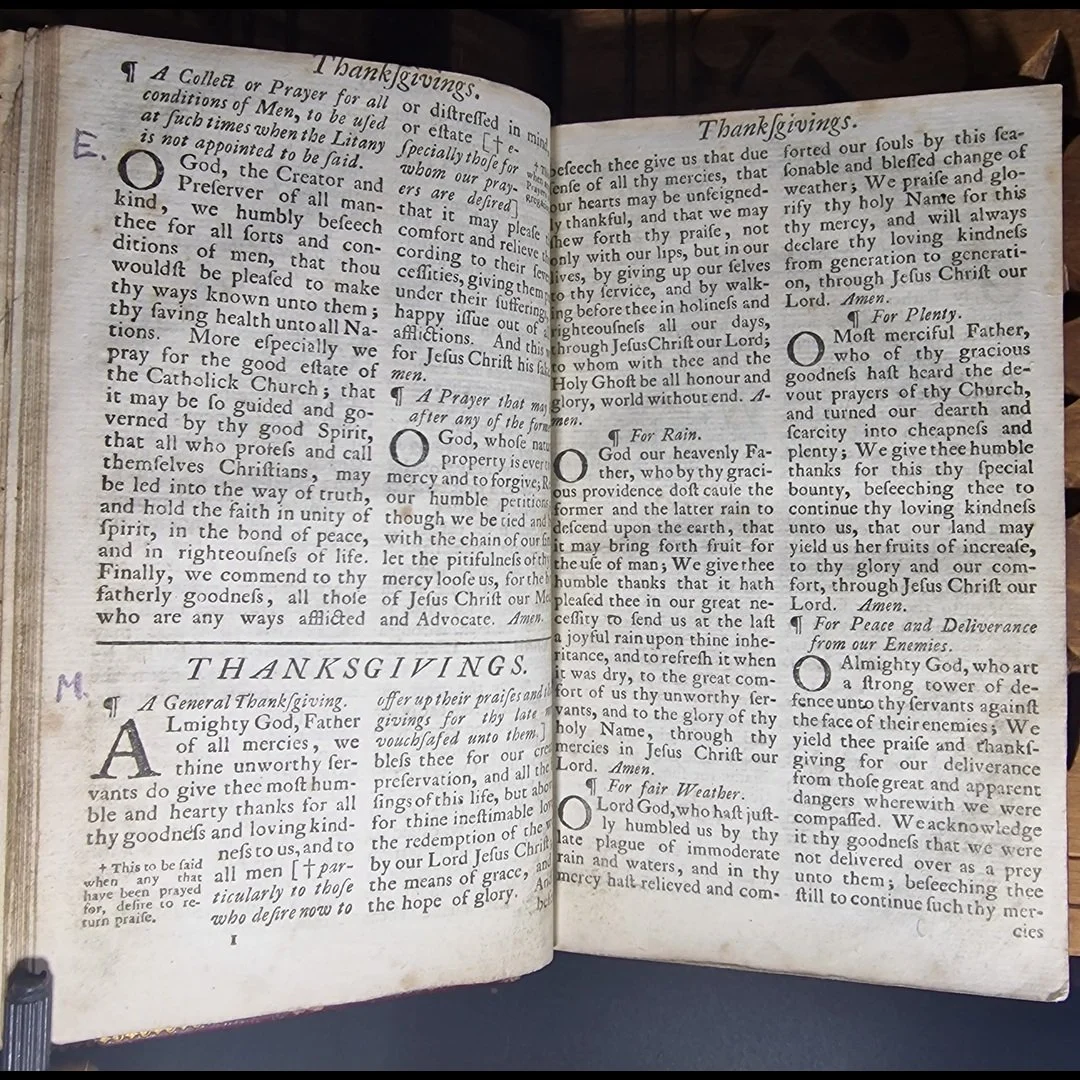 Thankſgivings.
¶ A Collect or Prayer for all
conditions of Men, to be uſed
at ſuch times when the Litany
is not appointed to be ſaid.
E.
O God, the Creator and
Preſerver of all man-
kind, we humbly beſeech
thee for all ſorts and con-
ditions of men, that thou
wouldſt be pleaſed to make
thy ways known unto them;
thy ſaving health unto all Na-
tions. More eſpecially we
pray for the good eſtate of
the Catholick Church; that
it may be ſo guided and go-
verned by thy good Spirit,
that all who profeſs and call
themſelves Chriſtians, may
be led into the way of truth,
and hold the faith in unity of
ſpirit, in the bond of peace,
and in righteouſneſs of life.
Finally, we commend to thy
fatherly goodneſs, all thoſe
who are any ways afflicted
or diſtreſſed in mind,
or eſtate [† e-
ſpecially thoſe for
whom our pray-
ers are deſired]
that it may pleaſe
comfort and relieve
cording to their
ceſſities, giving them
under their ſufferings,
happy iſſue out of
afflictions. And this
for Jeſus Chriſt his
men.
¶ A Prayer that may
after any of the
O God, whoſe
property is ever
mercy and to forgive;
our humble petitions
though we be tied and
with the chain of our
let the pitifulneſs of
mercy looſe us, for the
of Jeſus Chriſt our
and Advocate. Amen.
THANKSGIVINGS.
M.
¶ A General Thankſgiving.
ALmighty God, Father
of all mercies, we
thine unworthy ſer-
vants do give thee moſt hum-
ble and hearty thanks for all
thy goodneſs and loving kind-
neſs to us, and to
all men [† par-
ticularly to thoſe
who deſire now to
† This to be ſaid
when any that
have been prayed
for, deſire to re-
turn praiſe.
offer up their praiſes and
givings for thy late
vouchſafed unto them.]
bleſs thee for our
preſervation, and all the
ſings of this life, but
for thine ineſtimable
the redemption of the
by our Lord Jeſus Chriſt;
the means of grace, and
the hope of glory.
I
Thankſgivings.
beſeech thee give us that due
ſenſe of all thy mercies, that
our hearts may be unfeigned-
ly thankful, and that we may
ſhew forth thy praiſe, not
only with our lips, but in our
lives, by giving up our ſelves
to thy ſervice, and by walk-
ing before thee in holineſs and
righteouſneſs all our days,
through Jeſus Chriſt our Lord;
to whom with thee and the
Holy Ghoſt be all honour and
glory, world without end. A-
men.
¶ For Rain.
O God our heavenly Fa-
ther, who by thy graci-
ous providence doſt cauſe the
former and the latter rain to
deſcend upon the earth, that
it may bring forth fruit for
the uſe of man; We give thee
humble thanks that it hath
pleaſed thee in our great ne-
ceſſity to ſend us at the laſt
a joyful rain upon thine inhe-
ritance, and to refreſh it when
it was dry, to the great com-
fort of us thy unworthy ſer-
vants, and to the glory of thy
holy Name, through thy
mercies in Jeſus Chriſt our
Lord. Amen.
¶ For fair Weather.
O Lord God, who haſt juſt-
ly humbled us by thy
late plague of immoderate
rain and waters, and in thy
mercy haſt relieved and com-
forted our ſouls by this ſea-
ſonable and bleſſed change of
weather; We praiſe and glo-
rify thy holy Name for this
thy mercy, and will always
declare thy loving kindneſs
from generation to generati-
on, through Jeſus Chriſt our
Lord. Amen.
¶ For Plenty.
O Moſt merciful Father,
who of thy gracious
goodneſs haſt heard the de-
vout prayers of thy Church,
and turned our dearth and
ſcarcity into cheapneſs and
plenty; We give thee humble
thanks for this thy ſpecial
bounty, beſeeching thee to
continue thy loving kindneſs
unto us, that our land may
yield us her fruits of increaſe,
to thy glory and our com-
fort, through Jeſus Chriſt our
Lord. Amen.
¶ For Peace and Deliverance
from our Enemies.
O Almighty God, who art
a ſtrong tower of de-
fence unto thy ſervants againſt
the face of their enemies; We
yield thee praiſe and thankſ-
giving for our deliverance
from thoſe great and apparent
dangers wherewith we were
compaſſed. We acknowledge
it thy goodneſs that we were
not delivered over as a prey
unto them; beſeeching thee
ſtill to continue ſuch thy mer-
cies